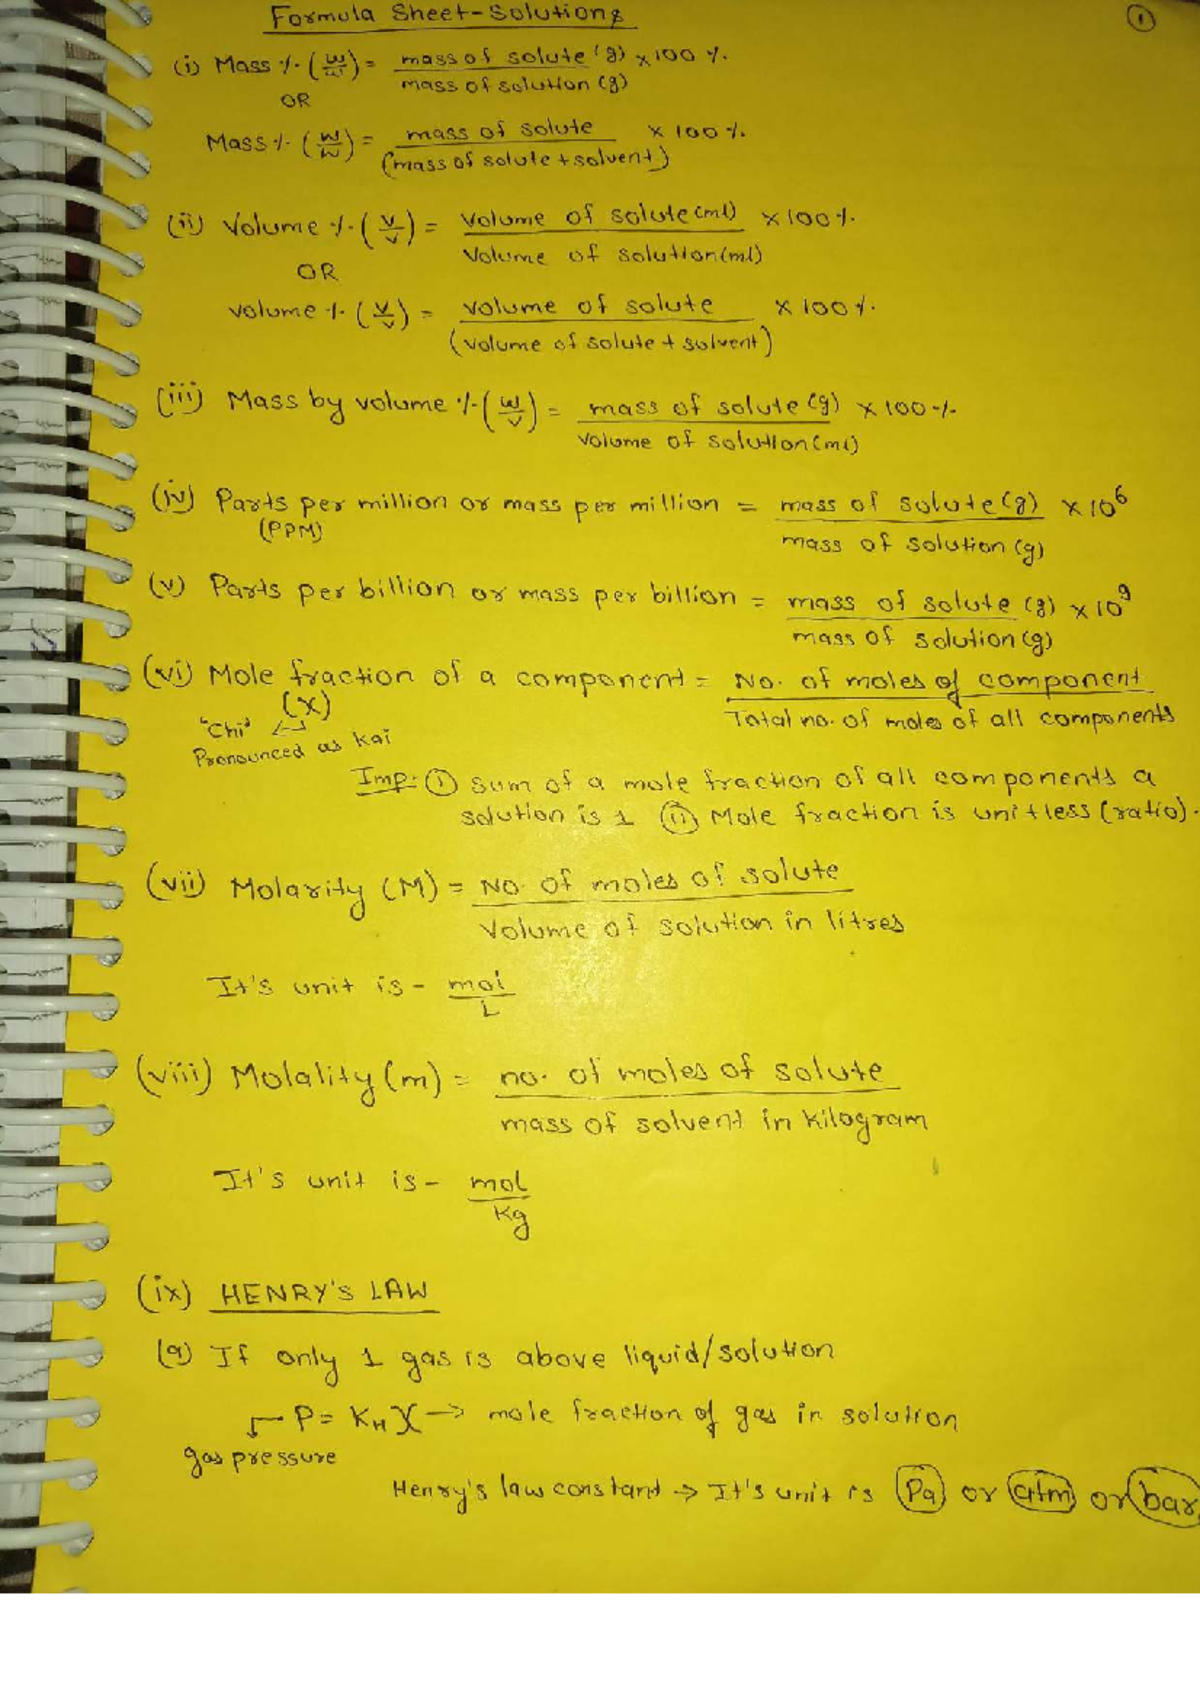 Formula Sheet-Solutions
①
(i) Mass % (w/w) = mass of solute (g) / mass of solution (g) × 100 %.
OR
Mass % (w/w) = mass of solute / (mass of solute + solvent) × 100 %.
(ii) Volume % (v/v) = Volume of solute (ml) / Volume of solution (ml) × 100 %.
OR
volume % (v/v) = volume of solute / (volume of solute + solvent) × 100 %.
(iii) Mass by volume % (w/v) = mass of solute (g) / volume of solution (ml) × 100 %
(iv) Parts per million or mass per million = mass of solute (g) / mass of solution (g) × 10⁶
(PPM)
(v) Parts per billion or mass per billion = mass of solute (g) / mass of solution (g) × 10⁹
(vi) Mole fraction of a component = No. of moles of component / Total no. of moles of all components
(χ)
"Chi"
Pronounced as Kai
Imp: ① Sum of a mole fraction of all components a
solution is 1 ② Mole fraction is unitless (ratio).
(vii) Molarity (M) = No. of moles of solute / Volume of solution in litres
It's unit is - mol / L
(viii) Molality (m) = no. of moles of solute / mass of solvent in Kilogram
It's unit is - mol / Kg
(ix) HENRY'S LAW
(a) If only 1 gas is above liquid/solution
P = K_H χ → mole fraction of gas in solution
gas pressure
Henry's law constant → It's unit is Pa or atm or bar